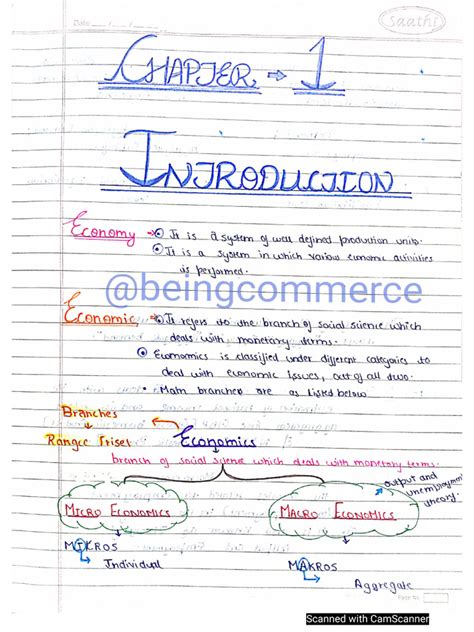 Date
Saathi
CHAPTER → 1
INTRODUCTION
Economy → It is a system of well defined production units.
It is a system in which various economic activities
is performed.
@beingcommerce
Economic → It refers to the branch of social science which
deals with monetary terms.
Economics is classified under different categories to
deal with economic issues, out of all two
Main branches are as listed below
Branches
Range Triset
Economics
branch of social science which deals with monetary terms
output and
unemployment
theory.
MICRO ECONOMICS
MACRO ECONOMICS
MIKROS
MAKROS
Individual
Aggregate
Page No.
Scanned with CamScanner